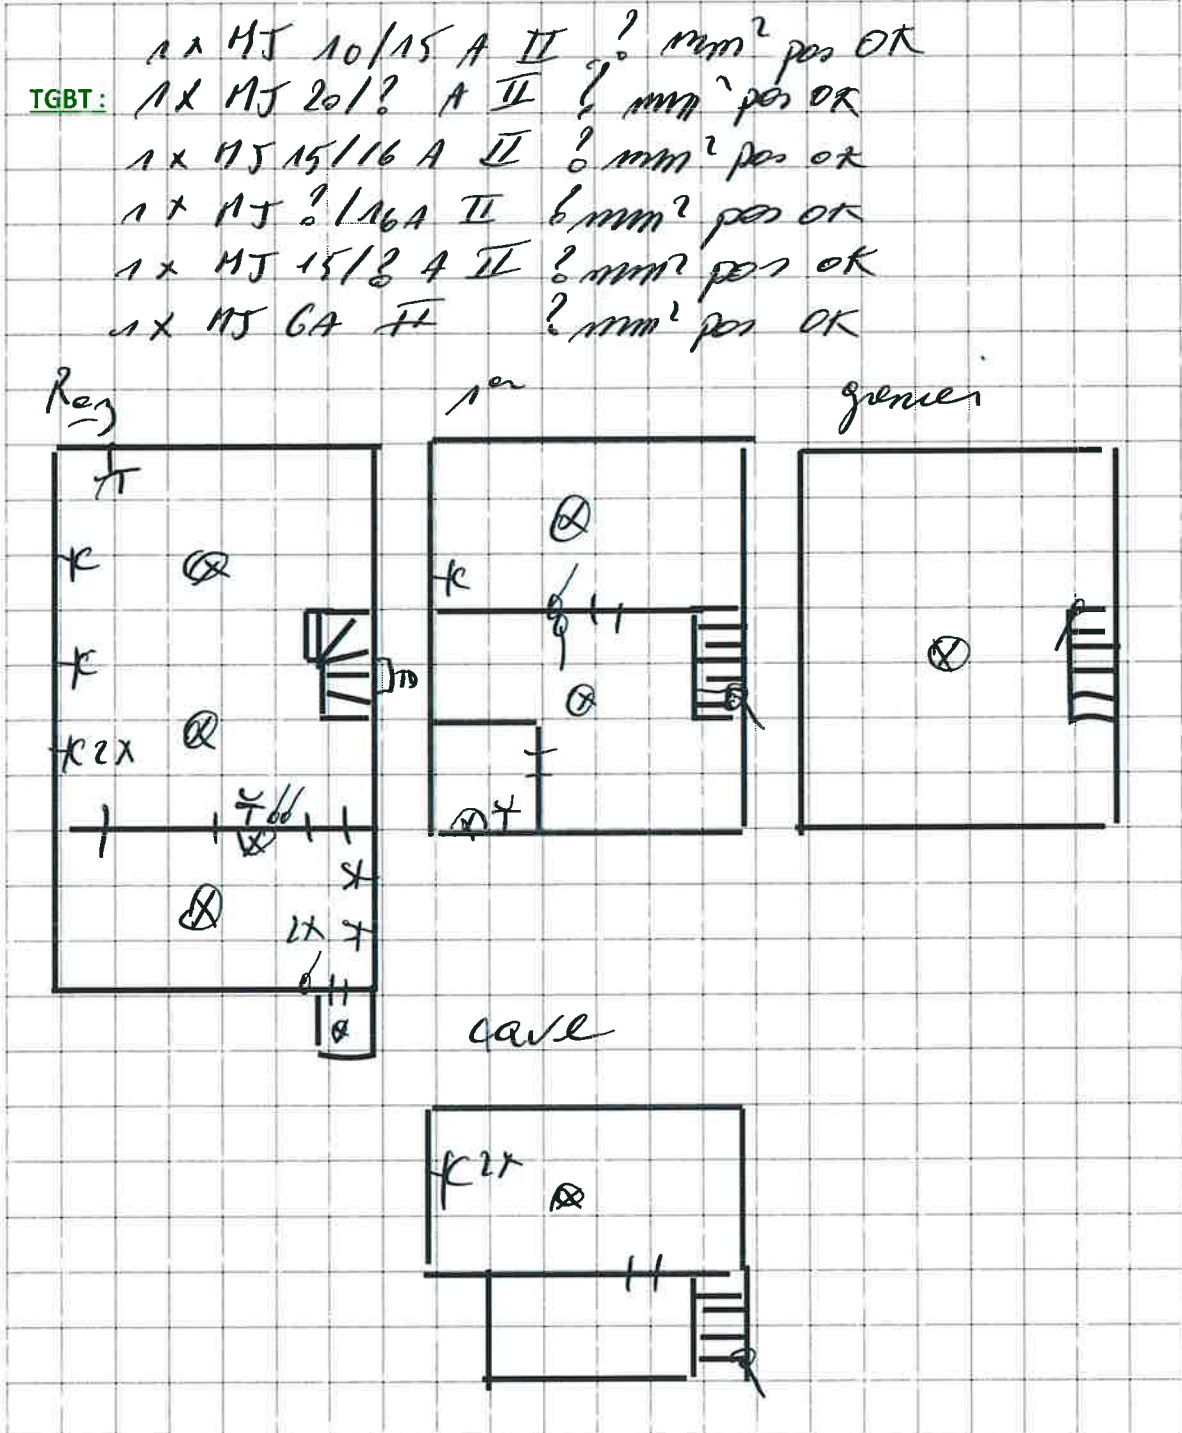 1 x MJ 10/15 A II ? mm² pas OK
TGBT: 1 X MJ 20/? A II ? mm² pas OK
1 x MJ 15/16 A II ? mm² pas OK
1 x MJ ?/16A II 6 mm² pas OK
1 x MJ 15/? A II ? mm² pas OK
1 X MJ 6A II ? mm² pas OK
Rez 1er grenier
TD
2X
2X
cave
2X